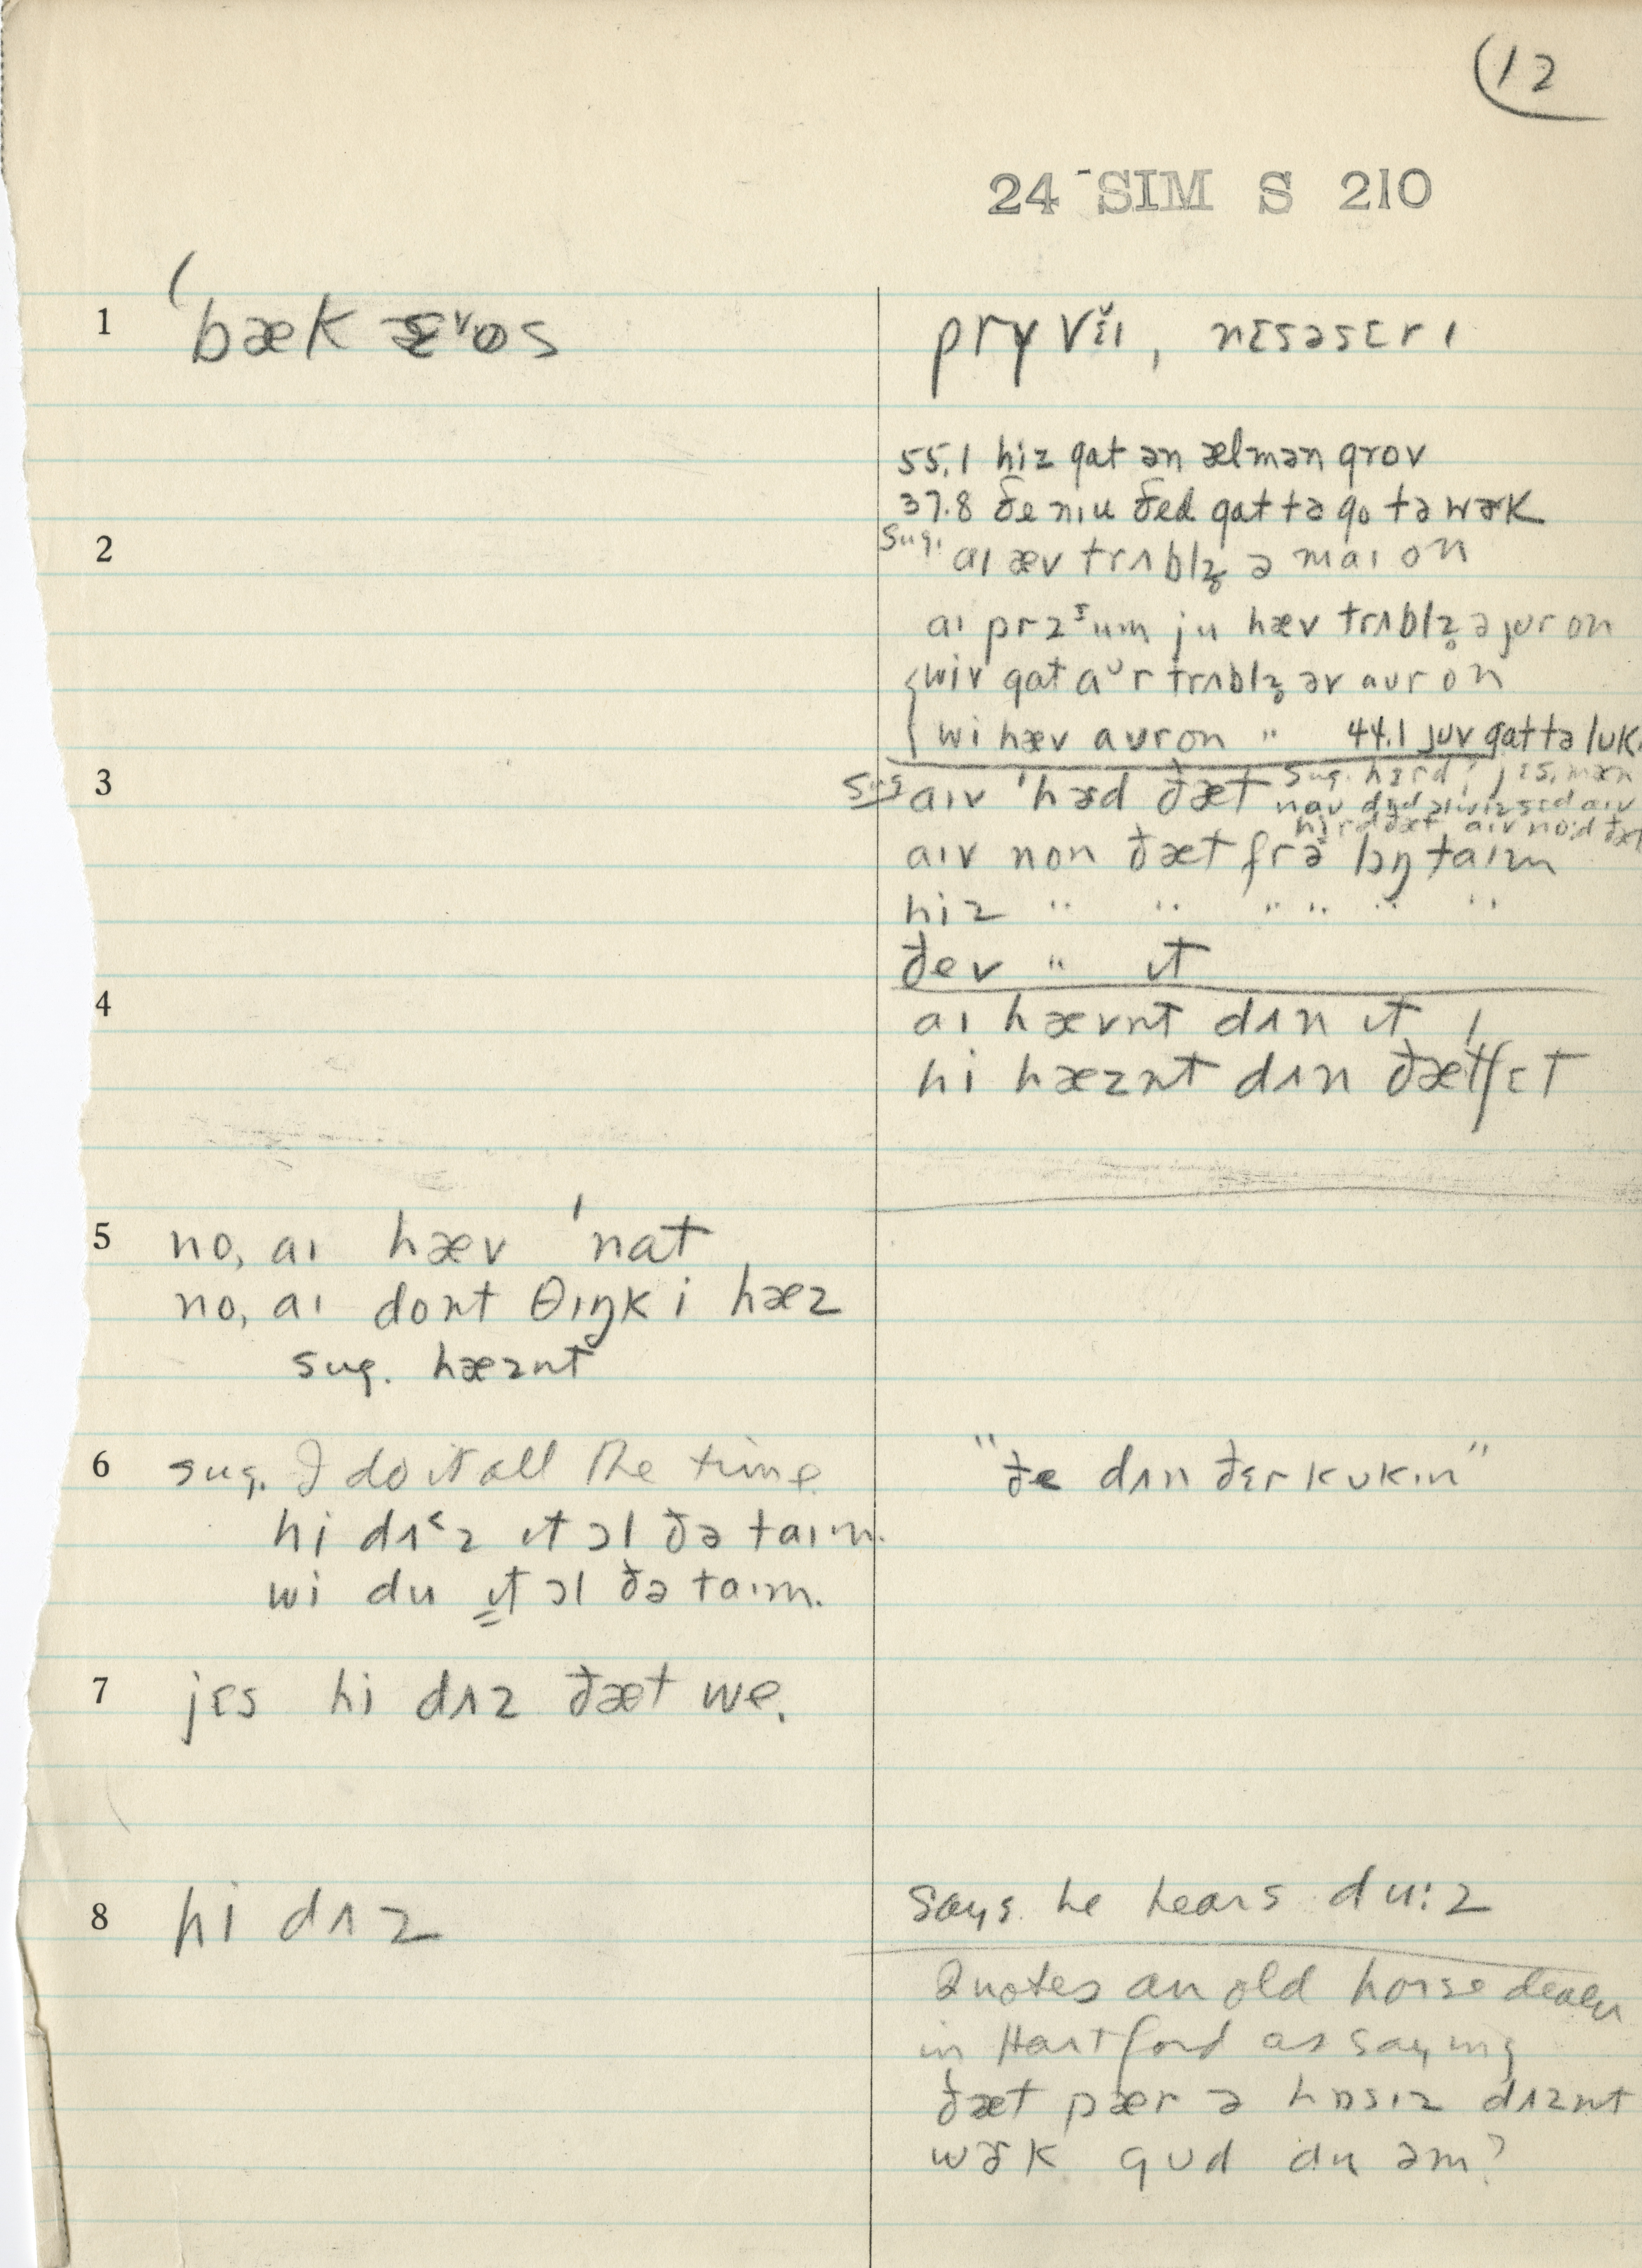 (12
24 SIM S 210
1 ˈbæk
prɪvɪ̆ɪ, nɛsəsɛrɪ
55.1 hiz gat ən ælmən grov
37.8 ðe nɪu ðed gat tə go tə wɚk
2 sug. aɪ æv trʌblz̥ ə maɪ on
ju hæv trʌblz̥ ə jʊr on
wiv gat aᴜr trʌblz̥ əv aʊr on
wi hæv aʊr on " 44.1 juv gat tə lʊk
3 sug aɪv ˈhɚd ðæt
aɪv non ðæt frə lɔŋ taɪm
hiz " " " " " "
ðev " ɪt
4 aɪ hævnt dʌn ɪt
hi hæznt dʌn ðæt jɛt
5 no, aɪ hæv ˈnat
no, aɪ dont θɪŋk i hæz
sug. hæznt
6 sug. I do it all the time
"ðe dʌn ðɛr kʊkɪn"
hi dʌ˂z ɪt ɔl ðə taɪm.
wi du ɪt ɔl ðə taɪm.
7 jɛs hi dʌz ðæt we.
8 hi dʌz
says he hears du:z
Quotes an old horse dealer
in Hartford as saying
ðæt pær ə hɒsɪz dʌznt
wɚk gʊd du əm?